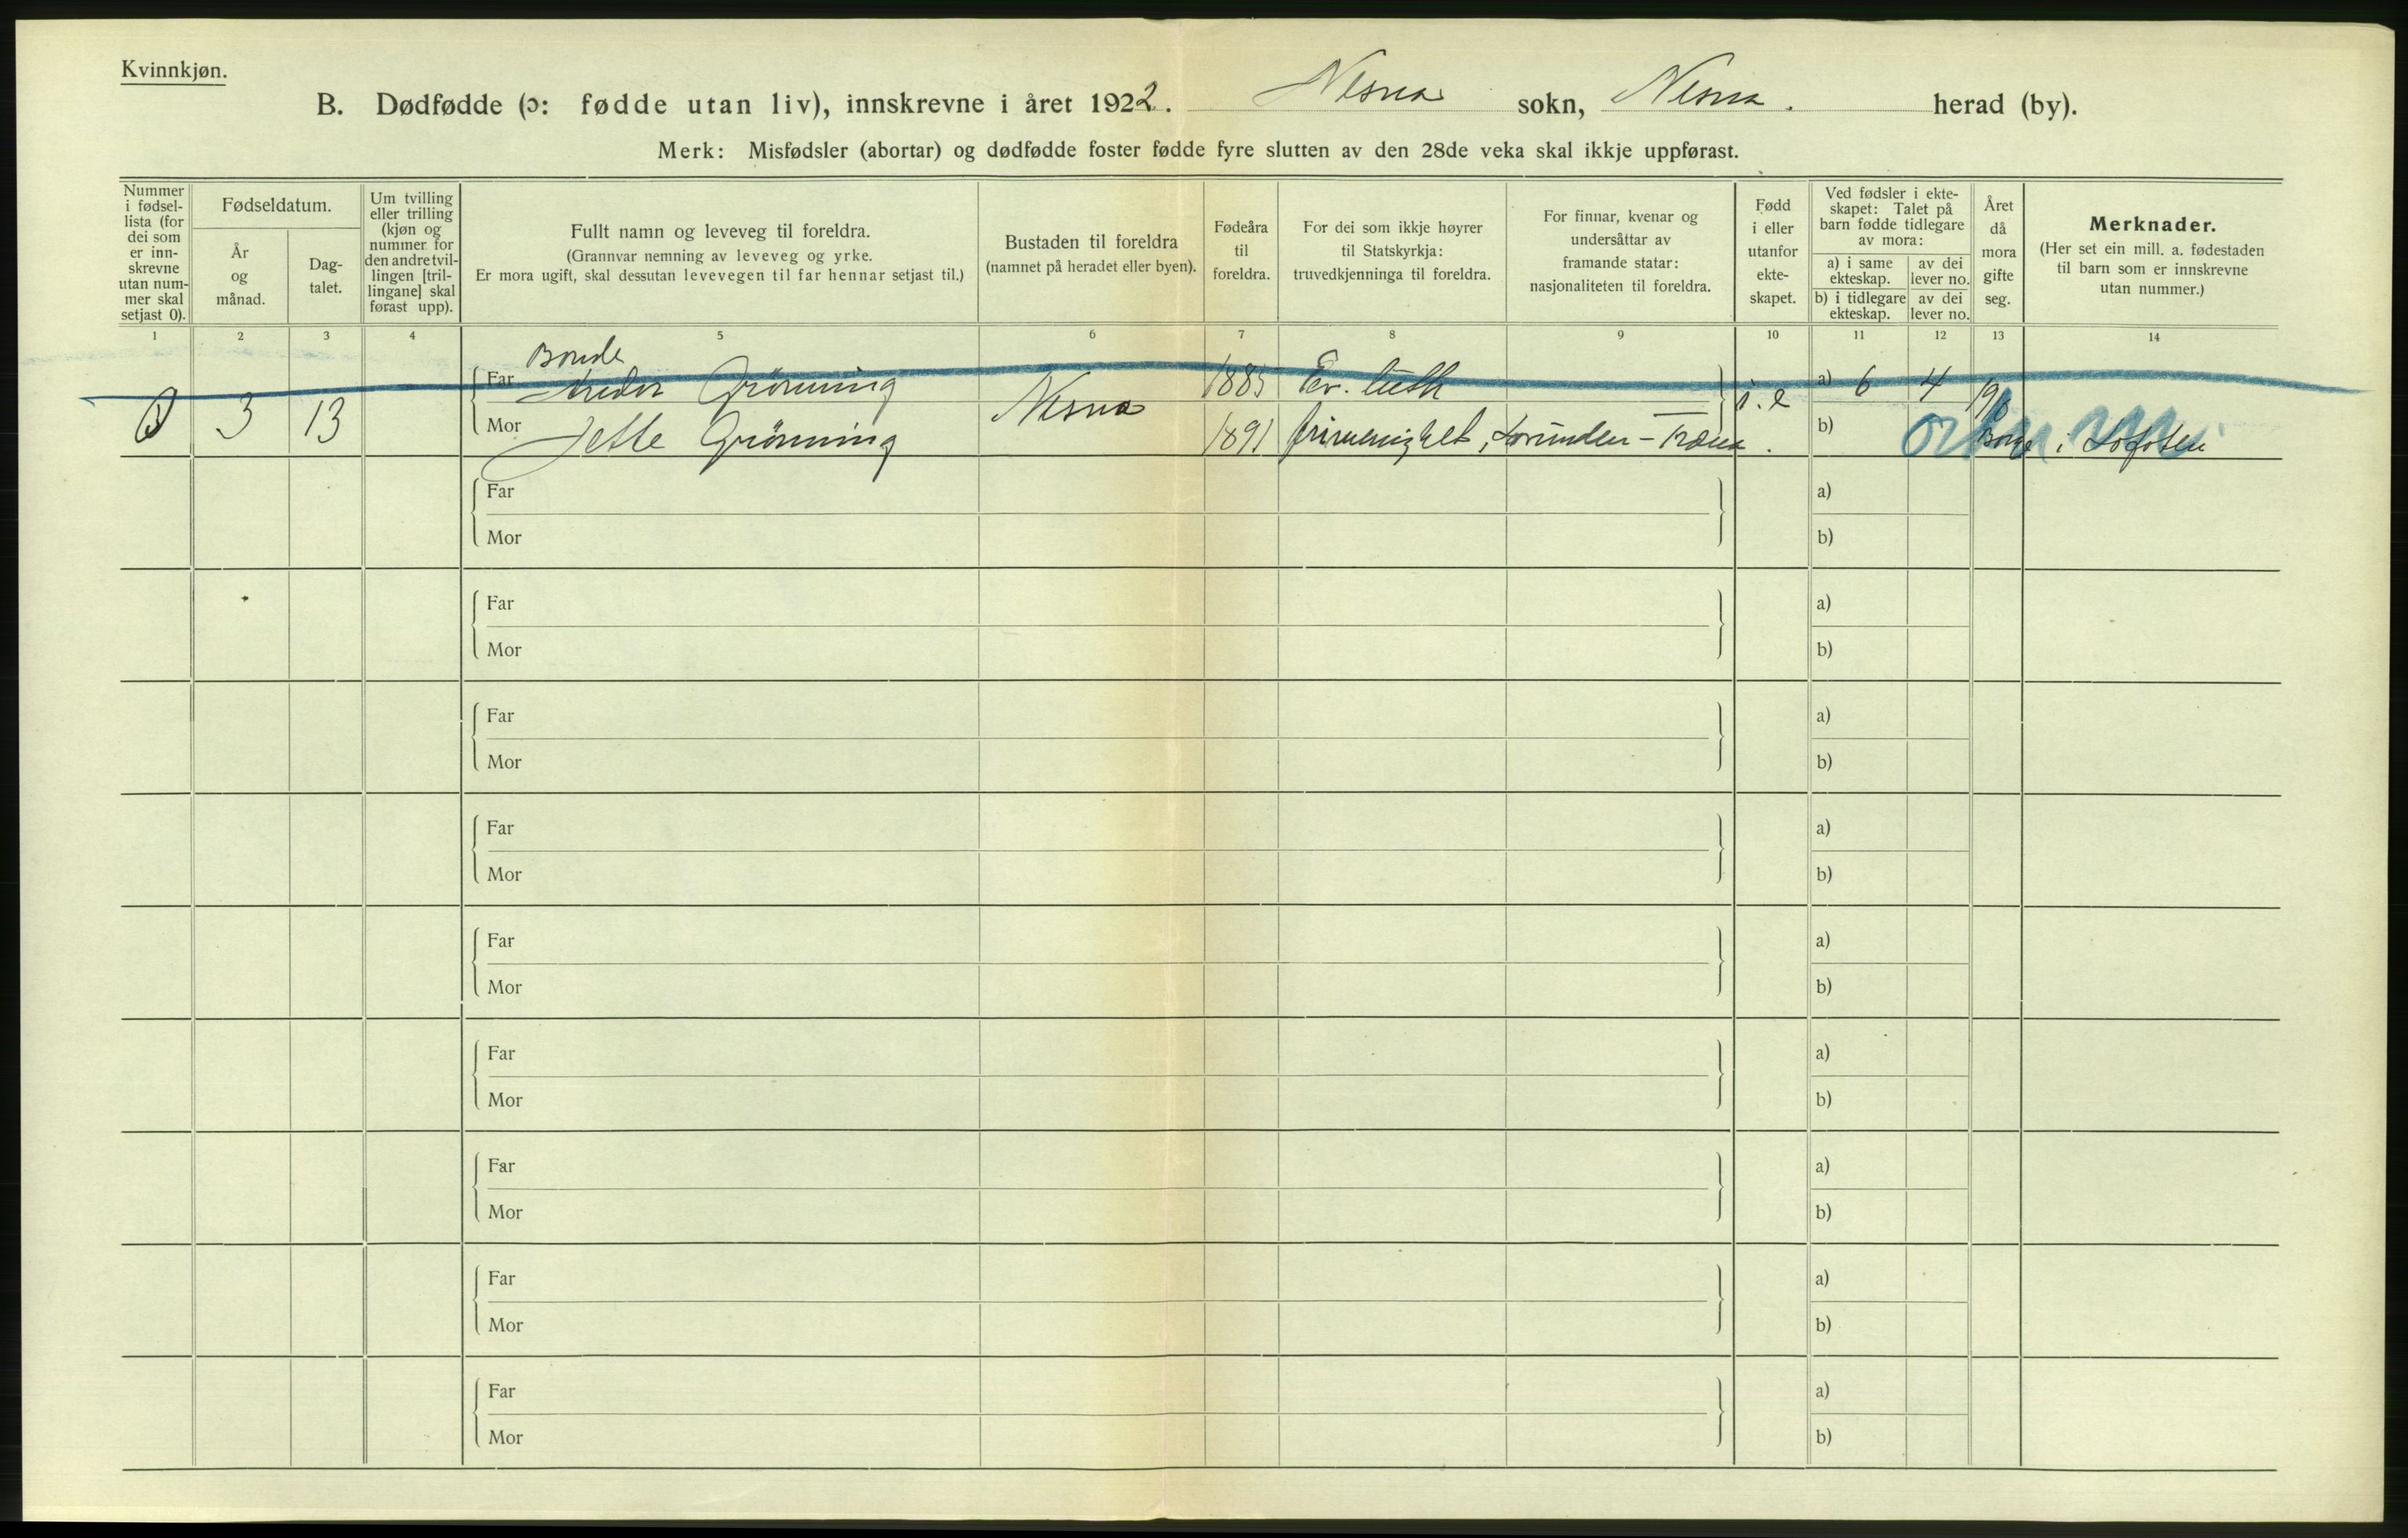 Kvinnkjøn.
B. Dødfødde (ɔ: fødde utan liv), innskrevne i året 1922. Nesna sokn, Nesna. herad (by).
Merk: Misfødsler (abortar) og dødfødde foster fødde fyre slutten av den 28de veka skal ikkje uppførast.
Nummer
i fødsel-
lista (for
dei som
er inn-
skrevne
utan num-
mer skal
setjast 0).
Fødseldatum.
År
og
månad.
Dag-
talet.
Um tvilling
eller trilling
(kjøn og
nummer for
den andre tvil-
lingen [tril-
lingane] skal
førast upp).
Fullt namn og leveveg til foreldra.
(Grannvar nemning av leveveg og yrke.
Er mora ugift, skal dessutan levevegen til far hennar setjast til.)
Bustaden til foreldra
(namnet på heradet eller byen).
Fødeåra
til
foreldra.
For dei som ikkje høyrer
til Statskyrkja:
truvedkjenninga til foreldra.
For finnar, kvenar og
undersåttar av
framande statar:
nasjonaliteten til foreldra.
Fødd
i eller
utanfor
ekte-
skapet.
Ved fødsler i ekte-
skapet: Talet på
barn fødde tidlegare
av mora:
a) i same
ekteskap.
av dei
lever no.
b) i tidlegare
ekteskap.
av dei
lever no.
Året
då
mora
gifte
seg.
Merknader.
(Her set ein mill. a. fødestaden
til barn som er innskrevne
utan nummer.)
1 2 3 4 5 6 7 8 9 10 11 12 13 14
Bonde
Far Grönning 1885 Ev. luth a) 6 4
0 3 13 Nesna i. e
Mor Jette Grönning 1891 frimenighet, Lovunden - Træna. b) i Lofoten
Far a)
Mor b)
Far a)
Mor b)
Far a)
Mor b)
Far a)
Mor b)
Far a)
Mor b)
Far a)
Mor b)
Far a)
Mor b)
Far a)
Mor b)
Far a)
Mor b)